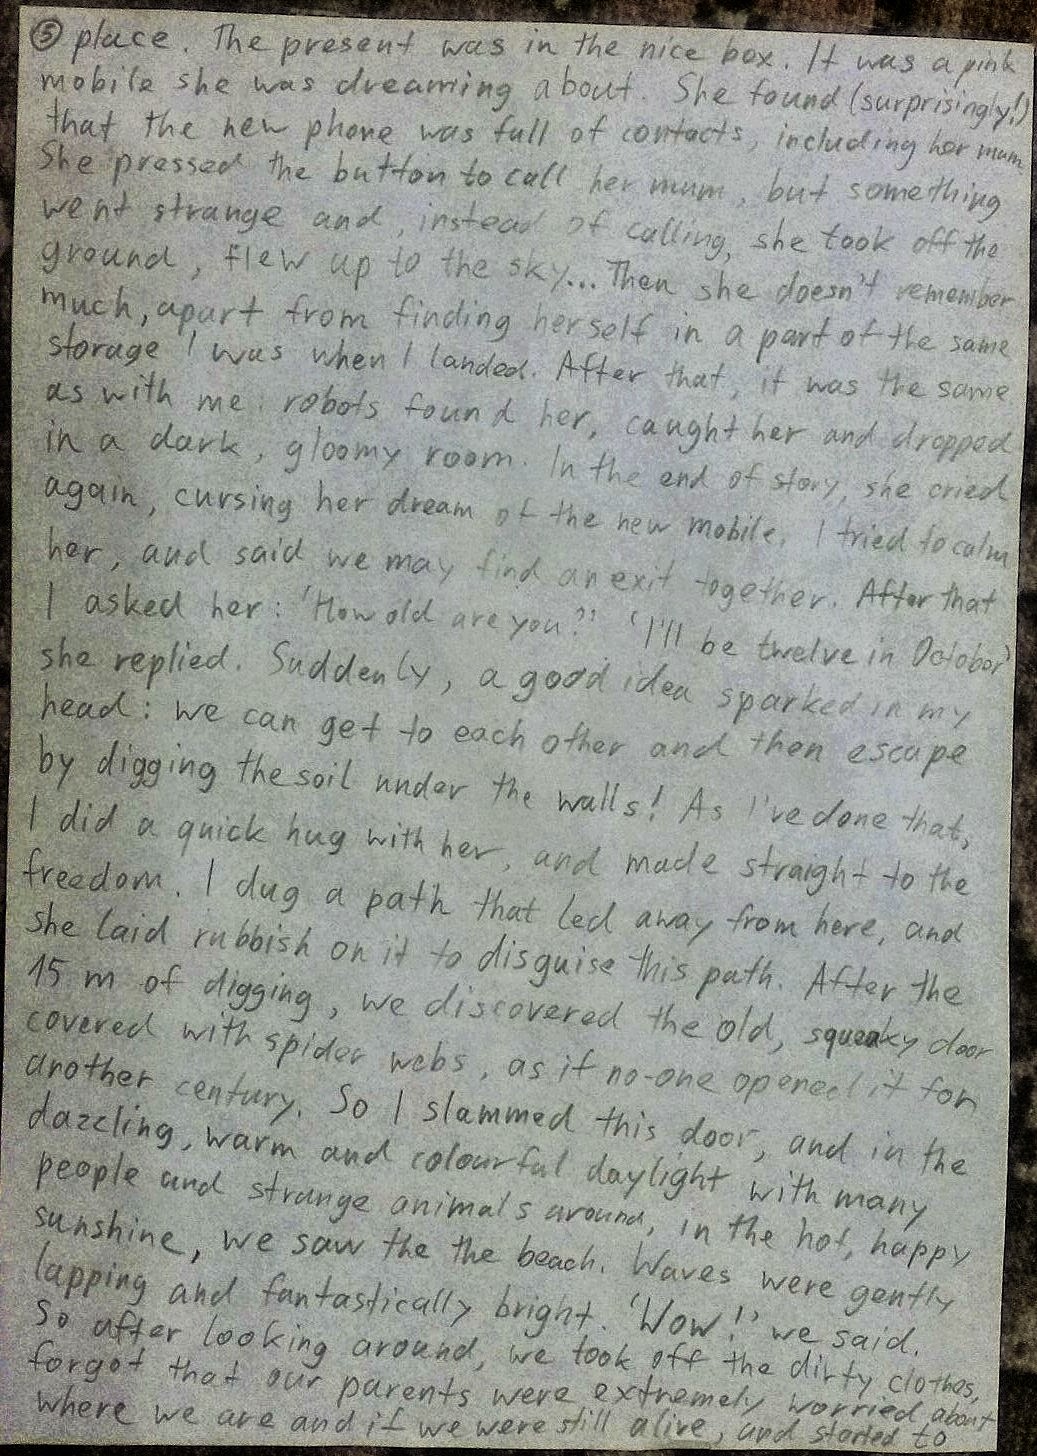 ⑤ place. The present was in the nice box. It was a pink
mobile she was dreaming about. She found (surprisingly!)
that the new phone was full of contacts, including her mum
She pressed the button to call her mum, but something
went strange and, instead of calling, she took off the
ground, flew up to the sky... Then she doesn't remember
much, apart from finding herself in a part of the same
storage I was when I landed. After that, it was the same
as with me: robots found her, caught her and dropped
in a dark, gloomy room. In the end of story, she cried
again, cursing her dream of the new mobile. I tried to calm
her, and said we may find an exit together. After that
I asked her: 'How old are you?' 'I'll be twelve in October'
she replied. Suddenly, a good idea sparked in my
head: we can get to each other and then escape
by digging the soil under the walls! As I've done that,
I did a quick hug with her, and made straight to the
freedom. I dug a path that led away from here, and
she laid rubbish on it to disguise this path. After the
15 m of digging, we discovered the old, squeaky door
covered with spider webs, as if no-one opened it for
another century. So I slammed this door, and in the
dazzling, warm and colourful daylight with many
people and strange animals around, in the hot, happy
sunshine, we saw the the beach. Waves were gently
lapping and fantastically bright. 'Wow!' we said.
So after looking around, we took off the dirty clothes,
forgot that our parents were extremely worried about
where we are and if we were still alive, and started to